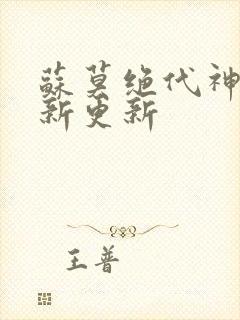 蘇莫绝代神
新更新
王普